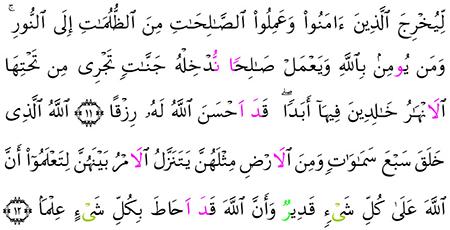 لِّيُخْرِجَ ٱلَّذِينَ ءَامَنُوا۟ وَعَمِلُوا۟ ٱلصَّٰلِحَٰتِ مِنَ ٱلظُّلُمَٰتِ إِلَى ٱلنُّورِ ۚ
وَمَن يُومِنۢ بِٱللَّهِ وَيَعْمَلْ صَٰلِحًا نُّدْخِلْهُ جَنَّٰتٍ تَجْرِى مِن تَحْتِهَا
اَلَانْهَٰرُ خَٰلِدِينَ فِيهَآ أَبَدًا ۖ قَدَ اَحْسَنَ ٱللَّهُ لَهُۥ رِزْقًا ١١ ٱللَّهُ ٱلَّذِى
خَلَقَ سَبْعَ سَمَٰوَٰتٍ وَمِنَ ٱلَارْضِ مِثْلَهُنَّ يَتَنَزَّلُ ٱلَامْرُ بَيْنَهُنَّ لِتَعْلَمُوٓا۟ أَنَّ
ٱللَّهَ عَلَىٰ كُلِّ شَىْءٍ قَدِيرٌ وَأَنَّ ٱللَّهَ قَدَ اَحَاطَ بِكُلِّ شَىْءٍ عِلْمًۢا ١٢